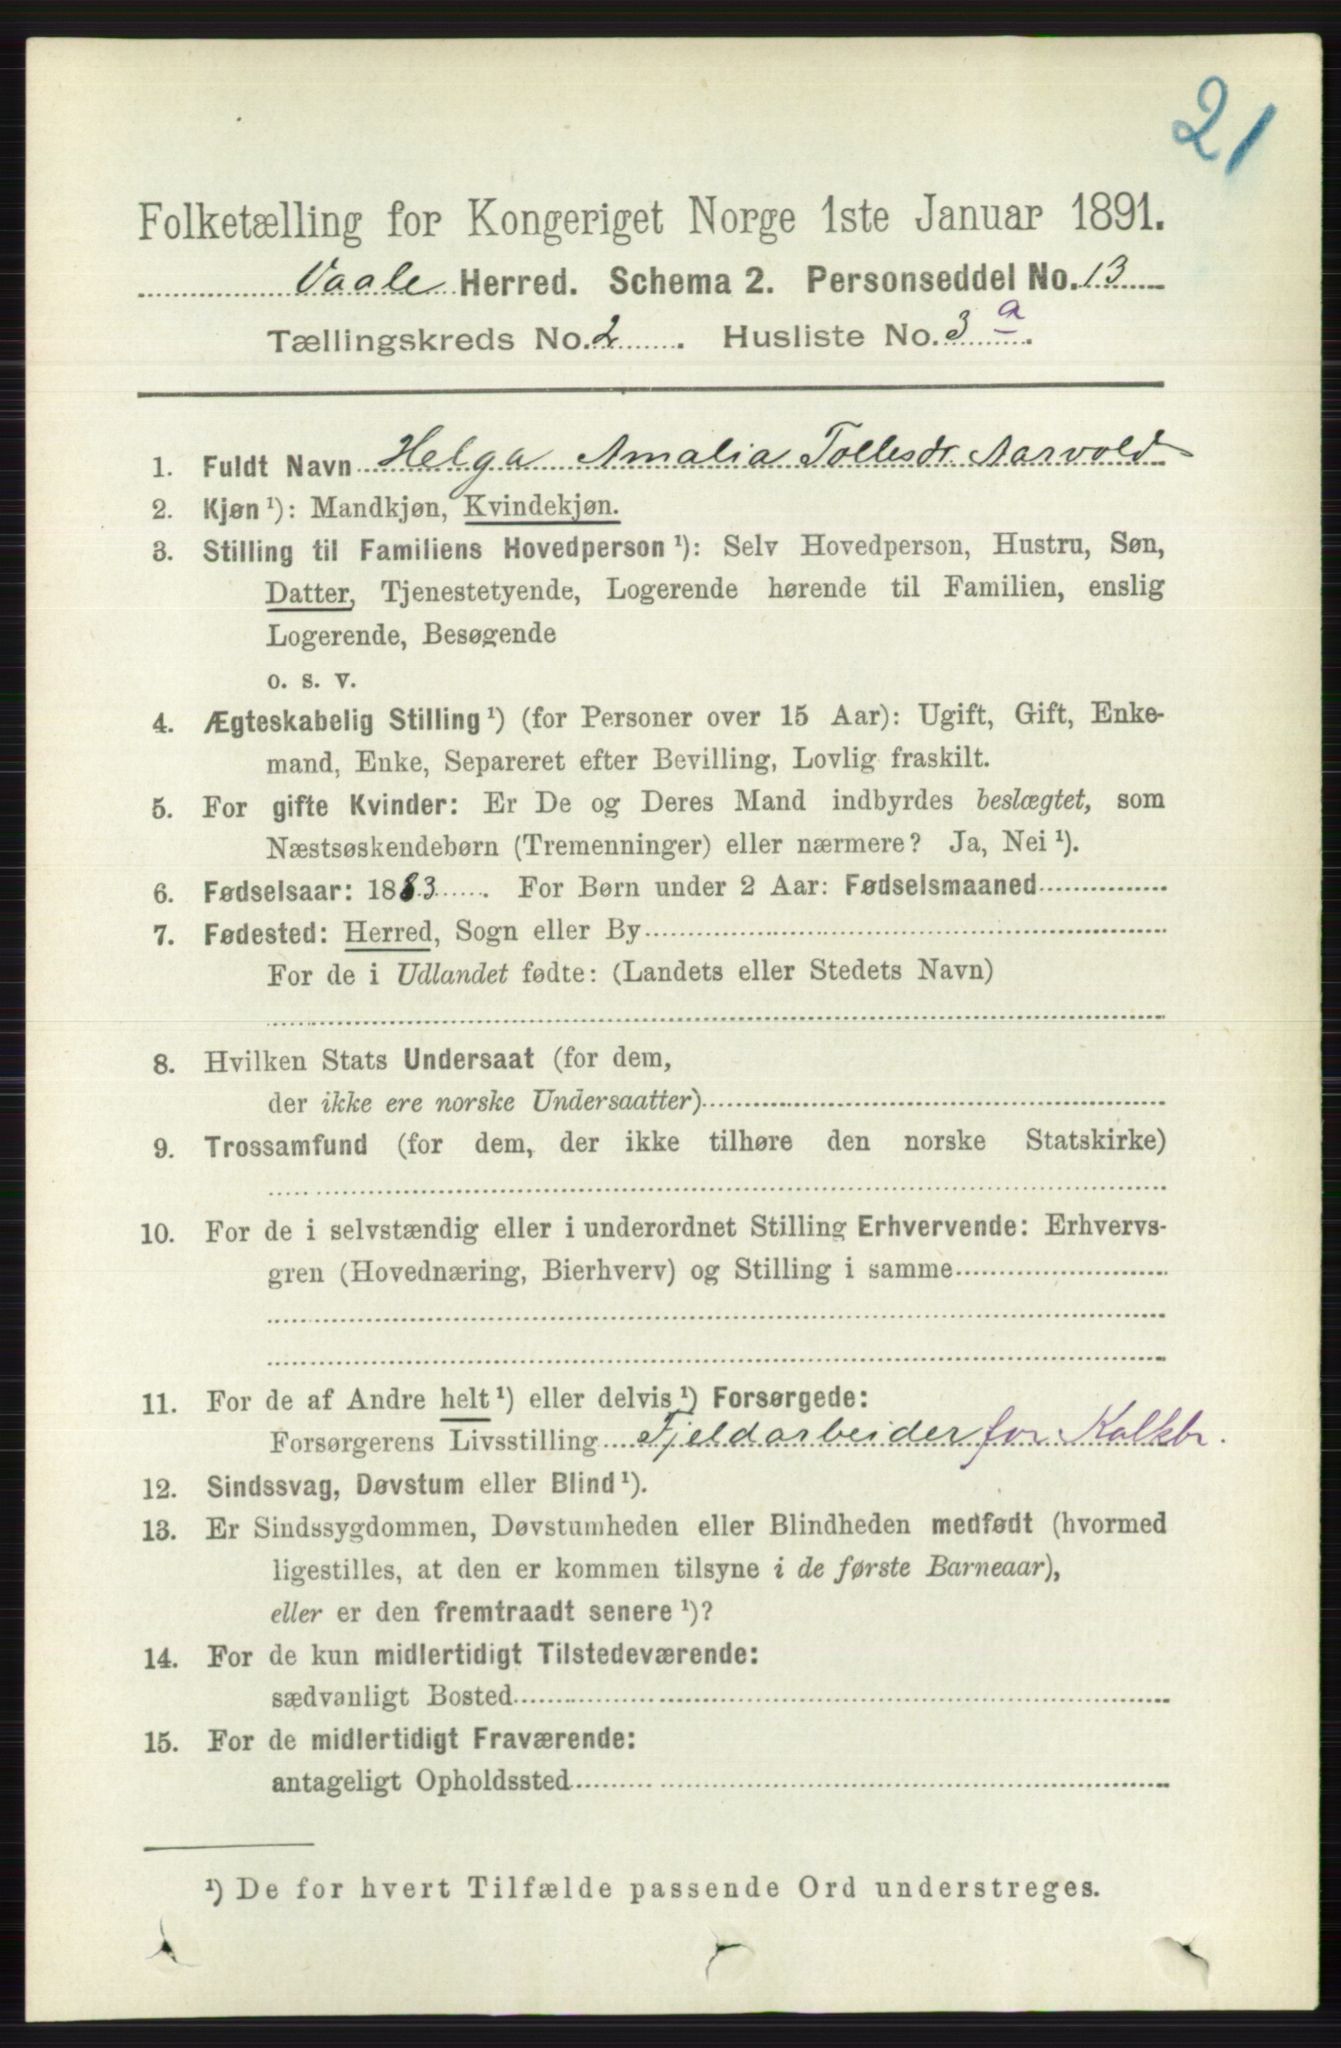 21
Folketælling for Kongeriget Norge 1ste Januar 1891.
Vaale Herred. Schema 2. Personseddel No. 13
Tællingskreds No. 2. Husliste No. 3 a.
1. Fuldt Navn Helga Amalia Tollesdr. Aarvold
2. Kjøn ¹): Mandkjøn, Kvindekjøn.
3. Stilling til Familiens Hovedperson ¹): Selv Hovedperson, Hustru, Søn,
Datter, Tjenestetyende, Logerende hørende til Familien, enslig
Logerende, Besøgende
o. s. v.
4. Ægteskabelig Stilling ¹) (for Personer over 15 Aar): Ugift, Gift, Enke-
mand, Enke, Separeret efter Bevilling, Lovlig fraskilt.
5. For gifte Kvinder: Er De og Deres Mand indbyrdes beslægtet, som
Næstsøskendebørn (Tremenninger) eller nærmere? Ja, Nei ¹).
6. Fødselsaar: 1883. For Børn under 2 Aar: Fødselsmaaned
7. Fødested: Herred, Sogn eller By
For de i Udlandet fødte: (Landets eller Stedets Navn)
8. Hvilken Stats Undersaat (for dem,
der ikke ere norske Undersaatter)
9. Trossamfund (for dem, der ikke tilhøre den norske Statskirke)
10. For de i selvstændig eller i underordnet Stilling Erhvervende: Erhvervs-
gren (Hovednæring, Bierhverv) og Stilling i samme
11. For de af Andre helt ¹) eller delvis ¹) Forsørgede:
Forsørgerens Livsstilling Fjeldarbeider for Kalkbr.
12. Sindssvag, Døvstum eller Blind ¹).
13. Er Sindssygdommen, Døvstumheden eller Blindheden medfødt (hvormed
ligestilles, at den er kommen tilsyne i de første Barneaar),
eller er den fremtraadt senere ¹)?
14. For de kun midlertidigt Tilstedeværende:
sædvanligt Bosted
15. For de midlertidigt Fraværende:
antageligt Opholdssted
¹) De for hvert Tilfælde passende Ord understreges.